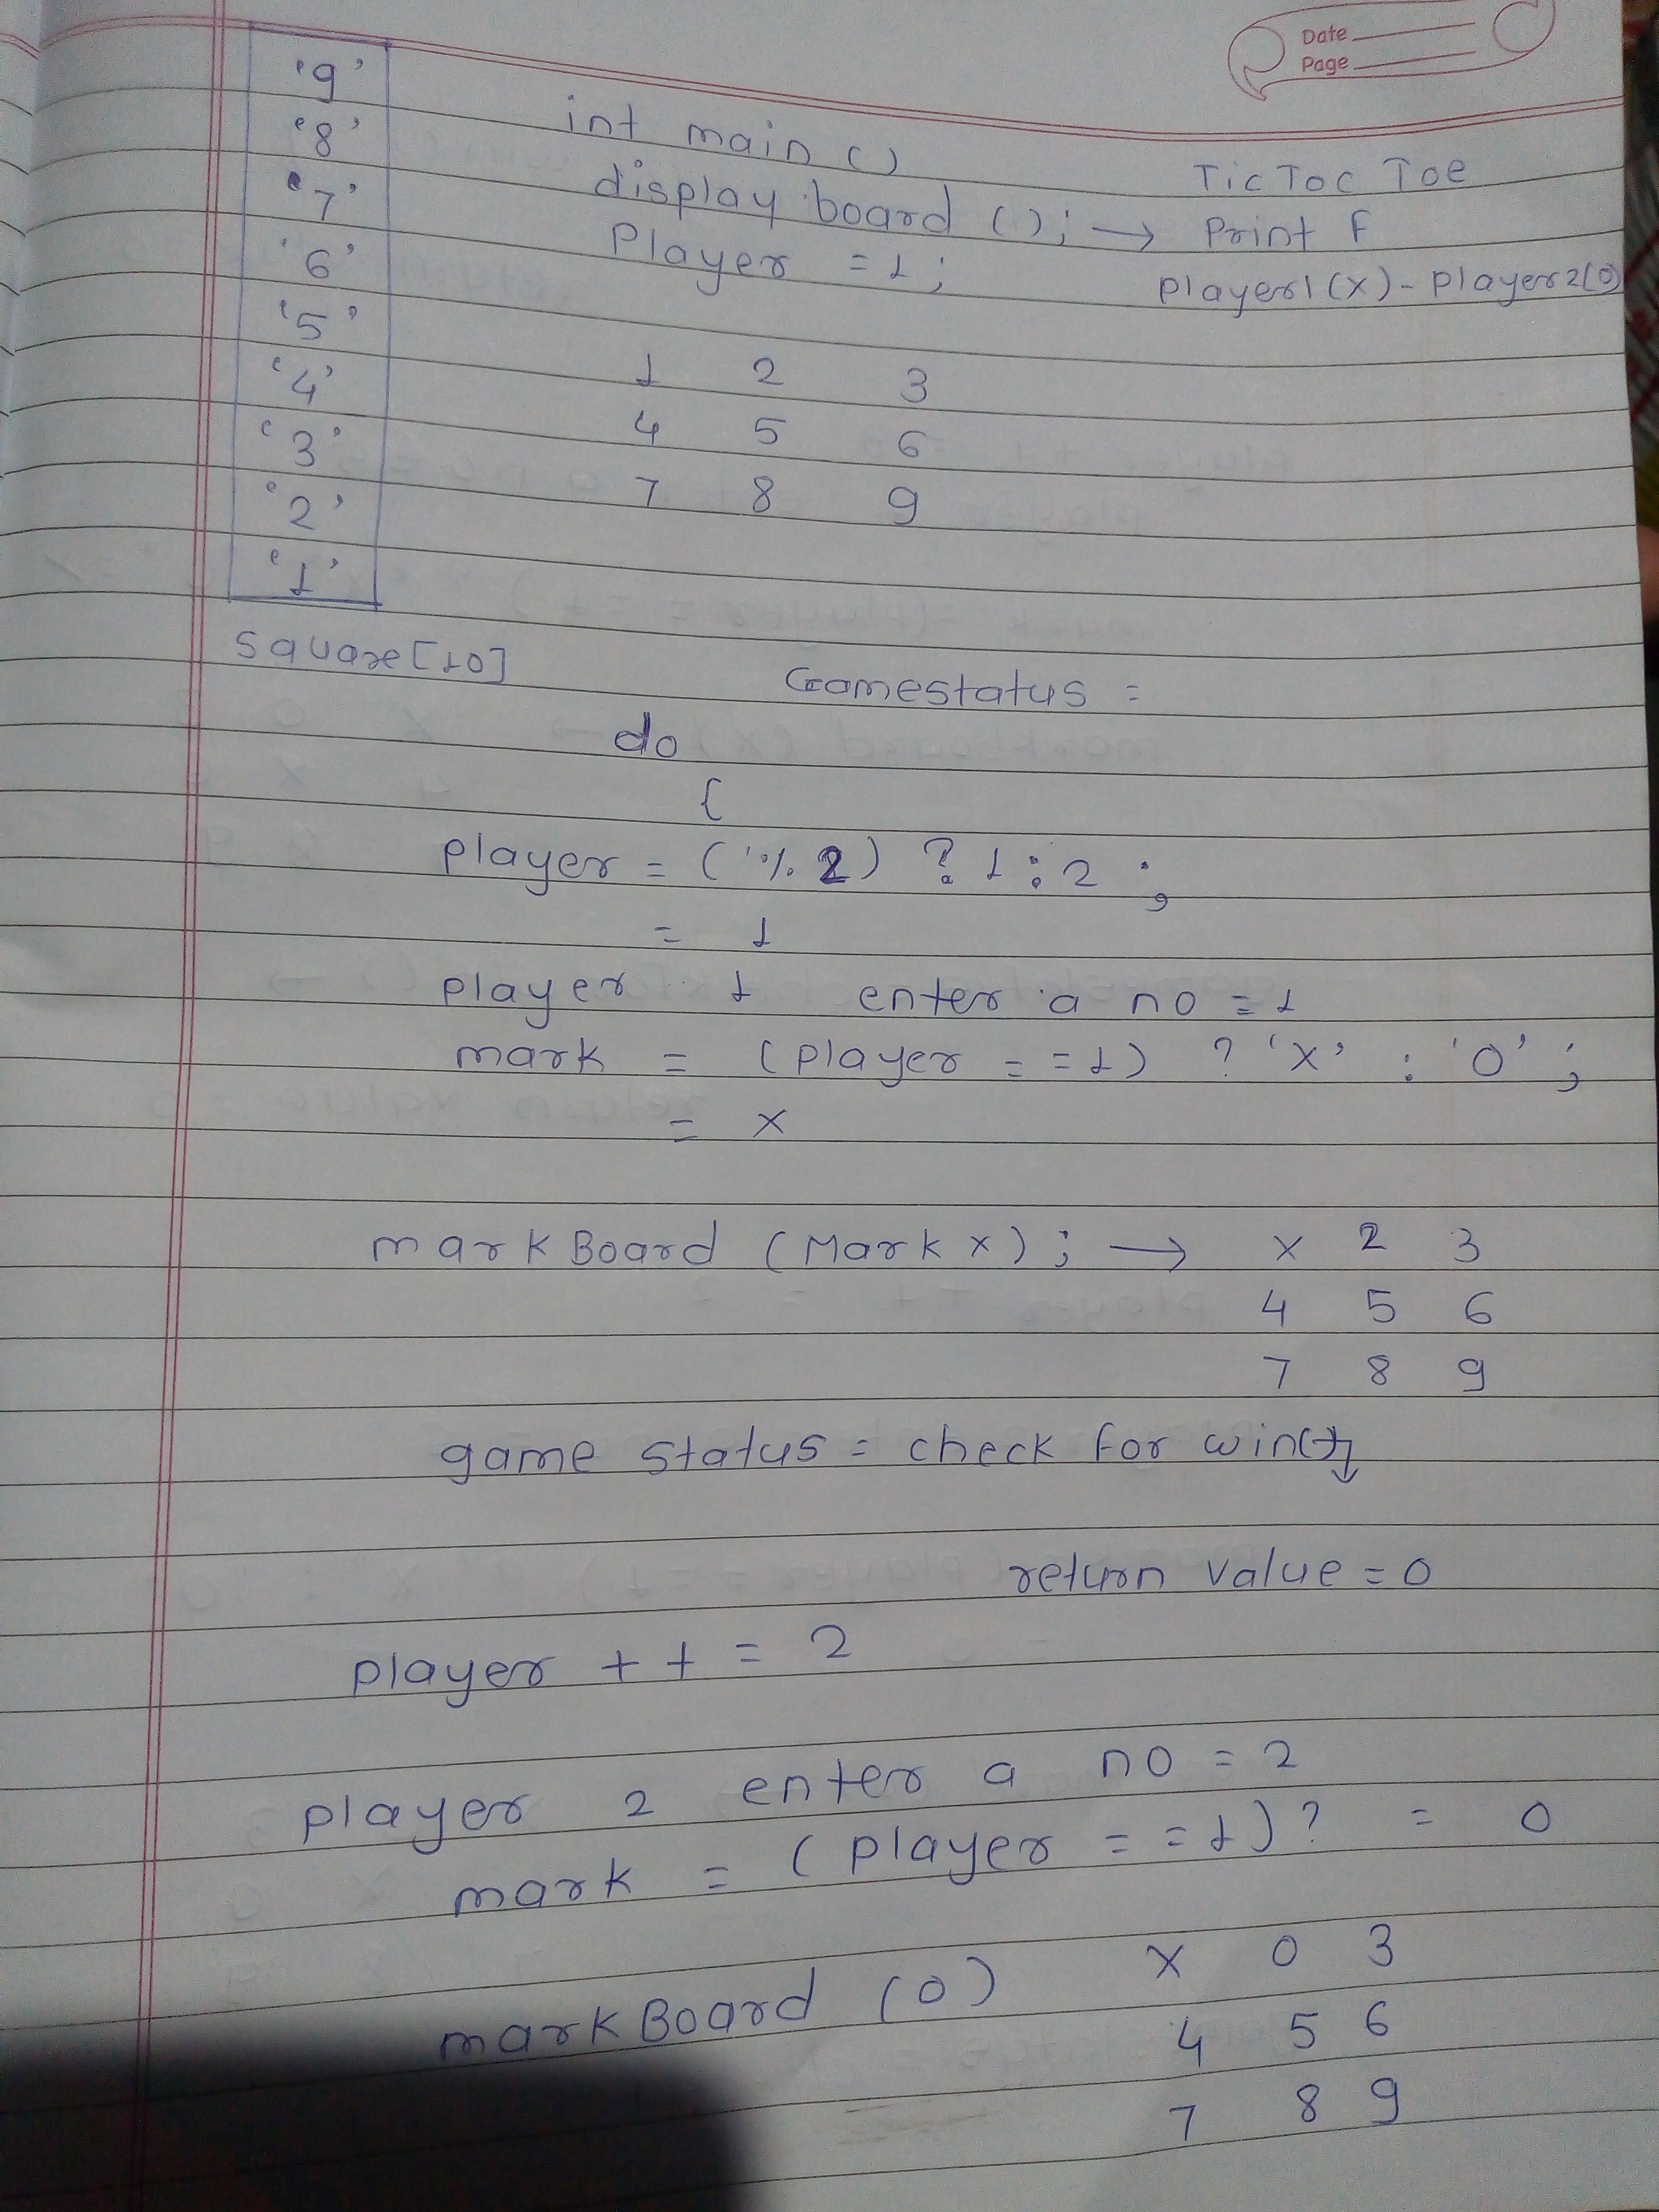 Date
Page
'9'
'8'
'7'
'6'
'5'
'4'
'3'
'2'
'1'
square[10]
int main ()
display board (); → Print F
Player = 1;
Tic Toc Toe
player1(X) - player2(0)
1 2 3
4 5 6
7 8 9
Gamestatus =
do
{
player = (% 2) ? 1 : 2 ;
= 1
player 1 enter a no = 1
mark = (player == 1) ? 'X' : '0' ;
= X
markBoard (Mark X) ; → X 2 3
4 5 6
7 8 9
game status = check for win()
return value = 0
player ++ = 2
player 2 enter a no = 2
mark = (player == 1) ? = 0
markBoard (0) X 0 3
4 5 6
7 8 9